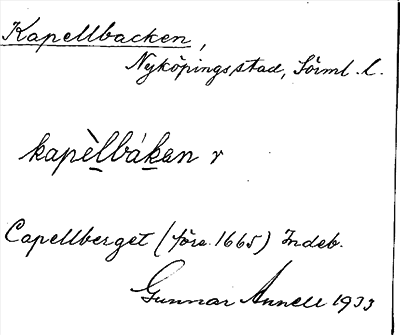 Kapellbacken,
Nyköpings stad, Sörml. l.
kapèl̠lbák̠en r
Capellberget (före 1665) Indeb.
Gunnar Annell 1933